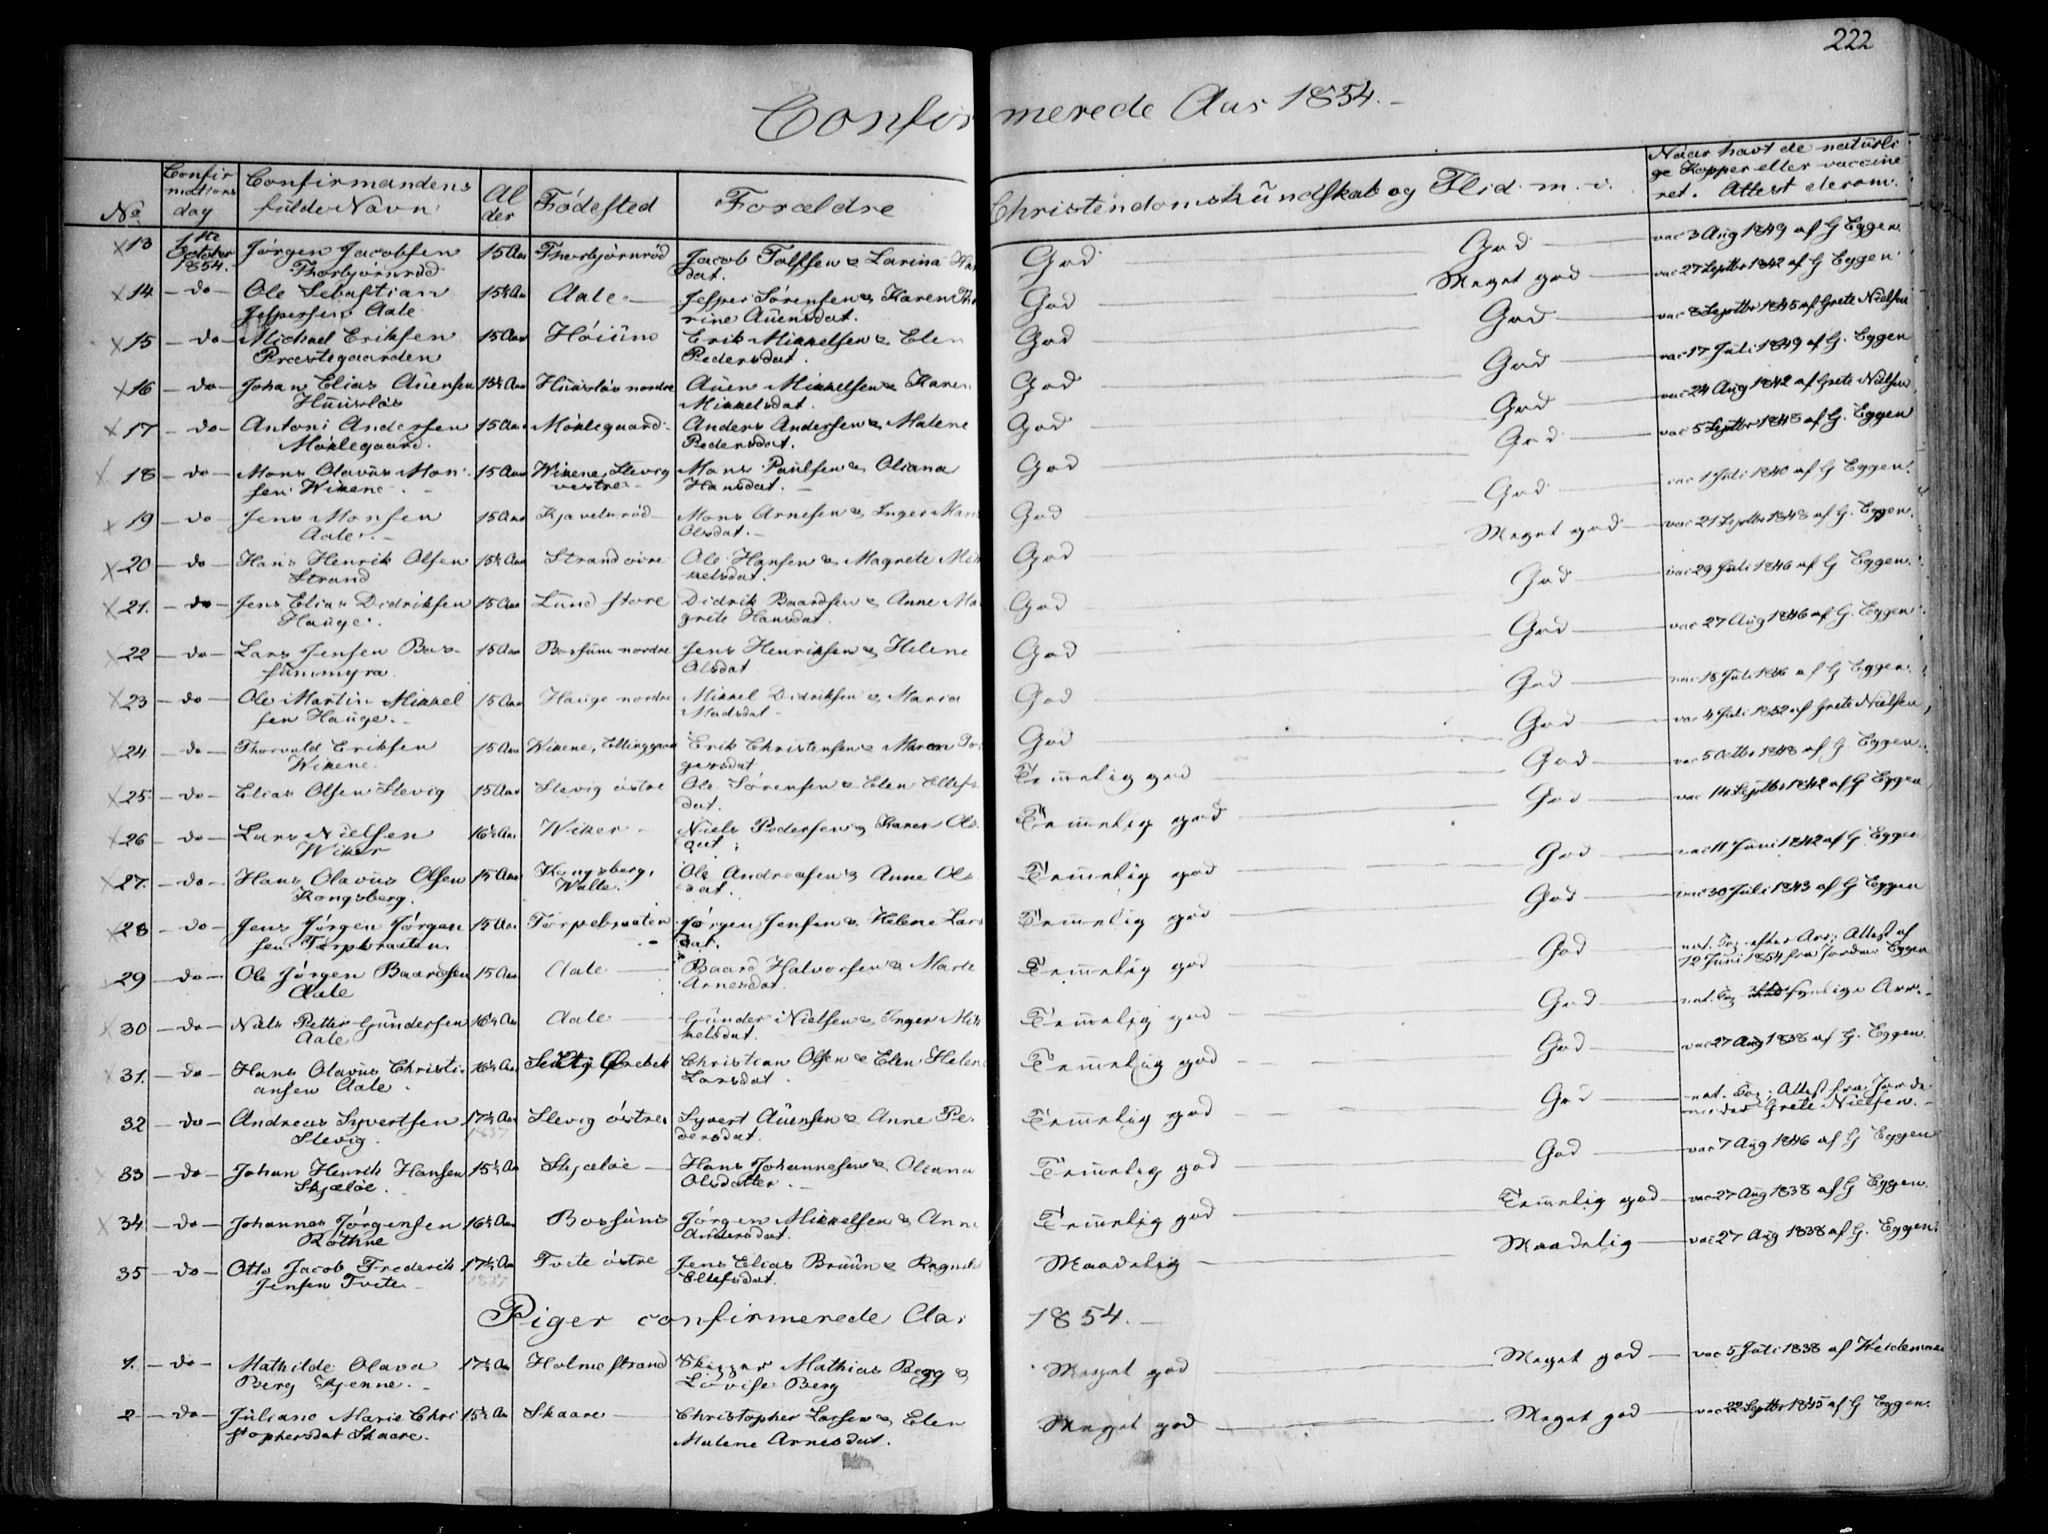 222
Confirmerede Aar 1854.
No
Confirmations dag
Confirmandens fulde Navn
Alder
Fødested
Forældre
Christendomskundskab og Flid m. v.
Naar havt de naturlige Kopper eller vaccineret. Attest derom.
13 1ste October 1854. Jørgen Jacobsen 15 Aar Thorbjørnrød Jacob Tolfsen & Larina God God vac 3 Aug 1849 af G Eggen
Thorbjørnrød dat.
14 do Ole Sebastian 15½ Aar Aale Jesper Sørensen & Karen God Meget god vac 27 Septbr 1842 af G Eggen
Jespersen Aale rine Auensdat.
15 do Michael Eriksen 15 Aar Høium Erik Mikkelsen & Elen God God vac 8 Septbr 1845 af Grete Nielsen
Præstegaarden Pedersdat.
16 do Johan Elias Auensen 15½ Aar Huusløs nordre Auen Mikkelsen & Karen God God vac 17 Juli 1849 af G. Eggen
Huusløs Mikkelsdat.
17 do Antoni Andersen 15 Aar Moklegaard Anders Andersen & Malene God God vac 24 Aug 1842 af Grete Nielsen
Moklegaard. Pedersdat.
18 do Mons Olavus Mon 15 Aar Wikene, Slevig Mons Paulsen & Oliana God God vac 5 Septbr 1848 af G. Eggen
sen Wikene. vestre Hansdat.
19 do Jens Monsen 15 Aar Kjævelsrød Mons Arnesen & Inger God God vac 1 Juli 1840 af G Eggen.
Aale. Olsdat.
20 do Hans Henrik Olsen 15½ Aar Strand øvre Ole Hansen & Magrete Mik God Meget god vac 21 Septbr 1848 af G. Eggen.
Strand kelsdat.
21. do Jens Elias Didriksen 15 Aar Lund store Didrik Baardsen & Anne Ma God God vac 29 Juli 1846 af G Eggen.
Hauge. grete Hansdat.
22 do Lars Jensen Bos 15 Aar Bossum nordre Jens Henriksen & Helene God God vac 27 Aug 1846 af G. Eggen.
summyra. Olsdat
23 do Ole Martin Mikkel 15 Aar Hauge nordre Mikkel Didriksen & Maria God God vac 18 Juli 1846 af G Eggen.
sen Hauge. Madsdat
24 do Thorvald Eriksen 15 Aar Wikene, Ellinggaard Erik Christensen & Maren God God vac 4 Juli 1852 af Grete Nielsen
Wikene. gersdat
25 do Elias Olsen Slevig 15 Aar Slevig østre Ole Sørensen & Elen Ellefs Temmelig god God vac 5 Octbr 1848 af G. Eggen.
dat.
26 do Lars Nielsen 16½ Aar Wiker Niels Pedersen & Karen Ols Temmelig god God vac 14 Septbr 1842 af G Eggen
Wiker dat
27. do Hans Olavus Olsen 15 Aar Kongsberg, Ole Andreasen & Anne Ols Temmelig god God vac 11 Juni 1842 af G Eggen
Kongsberg. Walle. dat.
28 do Jens Jørgen Jørgen 15 Aar Torpebraaten Jørgen Jensen & Helene Lars Temmelig god God vac 30 Juli 1843 af G Eggen
sen Torpbraaten. dat.
29 do Ole Jørgen Baardsen 15 Aar Aale Baard Halvorsen & Marte Temmelig god God nat. Kop efter Arr; Attest af
Aale Arnesdat. 12 Juni 1854 fra Jordm: Eggen
30 do Niels Petter Gundersen 16½ Aar Aale Gunder Nielsen & Inger Mik Temmelig god God nat. Kop synlige Arr.
Aale kelsdat.
31. do Hans Olavus Christi 16½ Aar Ørebek Christian Olsen & Elen Helene Temmelig god God vac 27 Aug 1838 af G. Eggen.
ansen Aale. Larsdat.
32 do Andreas Syvertsen 17½ Aar Slevig østre Syvert Auensen & Anne Pe Temmelig god God nat. Kop; Attest fra Jorde
Slevig. 1837 dersdat. moder Grete Nielsen.
33 do Johan Henrik Hansen 15½ Aar Skjæløe Hans Johannesen & Oliana Temmelig god God vac 7 Aug 1846 af G Eggen
Skjæløe. Olsdatter.
34 do Johannes Jørgensen 16½ Aar Bossum Jørgen Mikkelsen & Anne Temmelig god Temmelig god vac 27 Aug 1838 af G Eggen.
Rothne Andersdat.
35 do Otto Jacob Frederik 17½ Aar Tvete østre Jens Elias Bruun & Ragnild Maadelig Maadelig vac 27 Aug 1838 af G. Eggen.
Jensen Tvete 1837 Ellefsdat.
Piger confirmerede Aar 1854.
1. do Mathilde Olava 17½ Aar Holmestrand Skipper Mathias Berg & Meget god Meget god vac 5 Juli 1838 af Heideman
Berg Kjenne. Lovise Berg
2 do Juliane Marie Chri 15½ Aar Skaare Christopher Larsen & Elen Meget god Meget god vac 22 Septbr 1845 af G Eggen.
stophersdat Skaare. Malene Arnesdat.